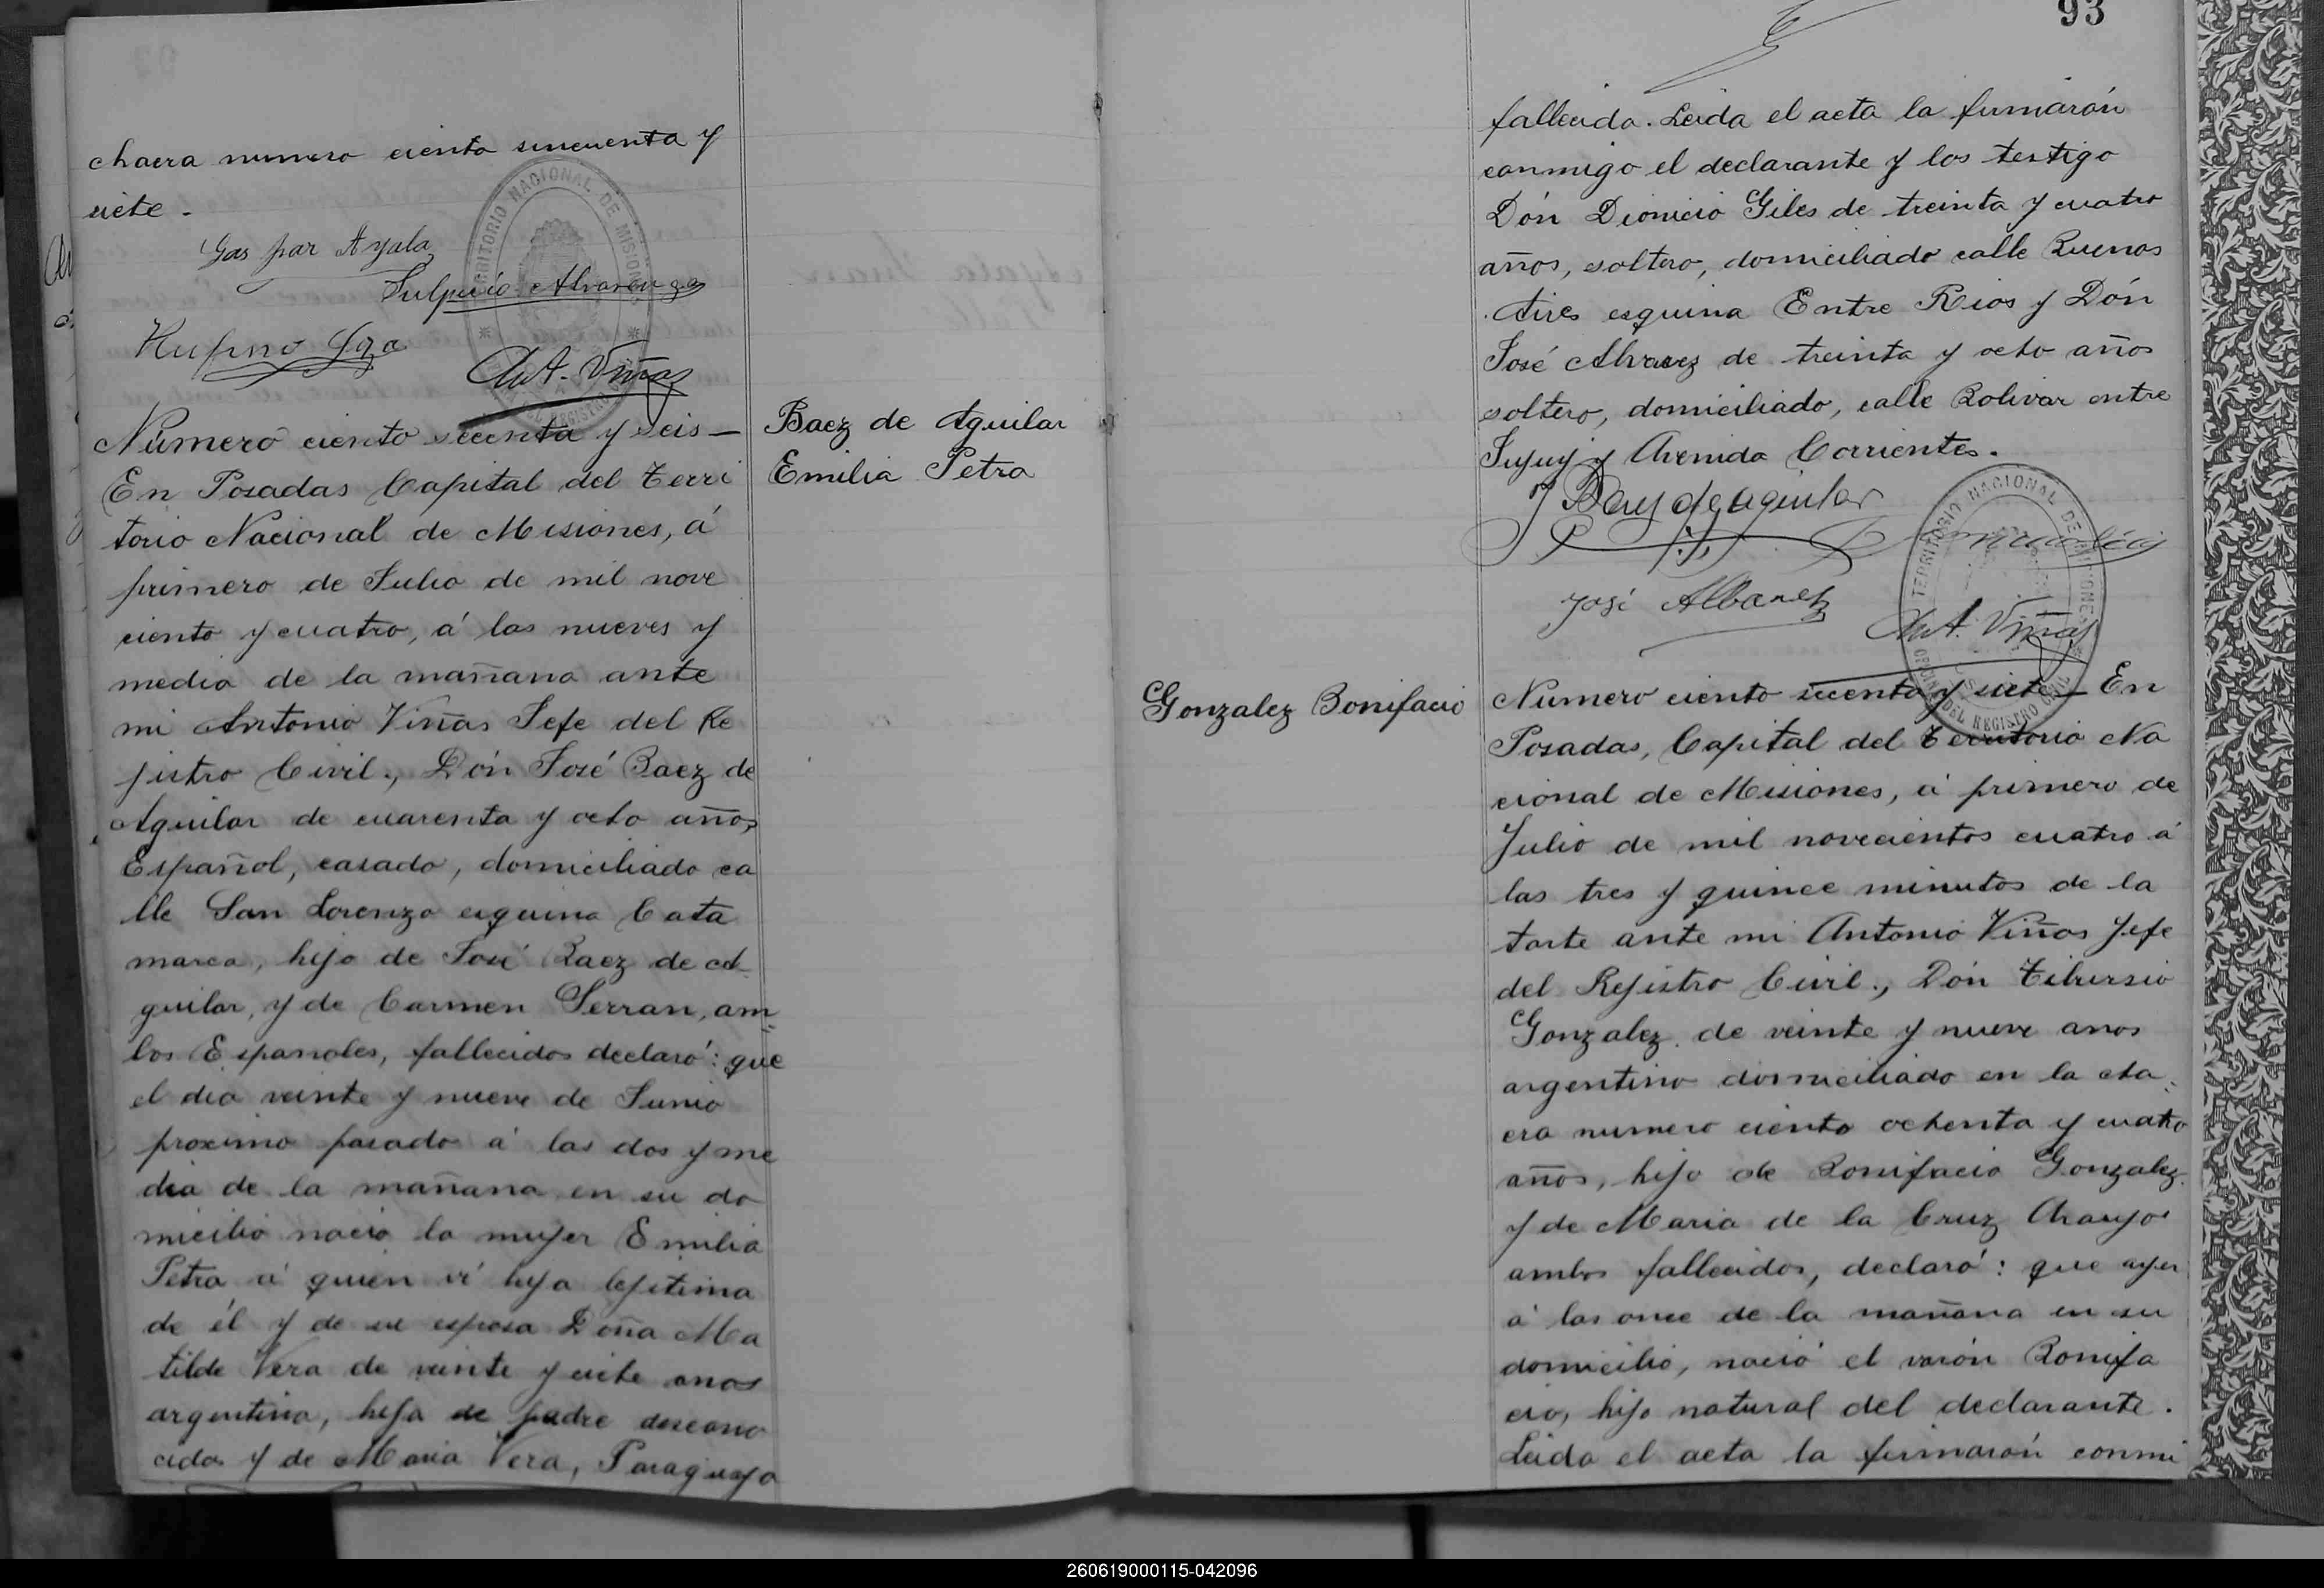 chacra numero ciento sincuenta y
siete.
Gaspar Ayala
Sulpicio Alvarenga
Rufino
Ant. Viñas
TERRITORIO NACIONAL DE MISIONES
Baez de Aguilar
Emilia Petra
Número ciento secenta y seis —
En Posadas Capital del Terri
torio Nacional de Misiones, á
primero de Julio de mil nove
ciento y cuatro, á las nueves y
media de la mañana ante
mi Antonio Viñas Jefe del Re
jistro Civil., Dón José Baez de
Aguilar de cuarenta y octo años
Español, casado, domiciliado ca
lle San Lorenzo esquina Cata
marca, hijo de José Baez de A
guilar, y de Carmen Serran, am
bos Españoles, fallecidos declaró: que
el dia veinte y nueve de Junio
proximo pasado á las dos y me
dia de la mañana en su do
micilio nació la mujer Emilia
Petra á quien ví hija lejitima
de él y de su esposa Doña Ma
tilde Vera de veinte y siete anos
argentina, hija de padre descono
cidos y de Maria Vera, Paraguaya
93
fallecida. Leida el acta la firmarón
conmigo el declarante y los testigo
Dón Dionicio Giles de treinta y cuatro
años, soltero, domiciliado calle Buenos
Aires esquina Entre Rios y Dón
José Alvarez de treinta y octo años
soltero, domiciliado, calle Bolivar entre
Jujuy y Avenida Corrientes.
J Baez de Aguilar
José Albarez
Ant. Viñas
TERRITORIO NACIONAL DE MISIONES
OFICINA DEL REGISTRO CIVIL
Gonzalez Bonifacio
Numero ciento secenta y siete — En
Posadas, Capital del Territorio Na
cional de Misiones, á primero de
Julio de mil novecientos cuatro á
las tres y quince minutos de la
tarte ante mi Antonio Viñas Jefe
del Rejistro Civil., Dón Tibursio
Gonzalez de veinte y nueve anos
argentino domiciliado en la cha
cra numero ciento ochenta y cuatro
años, hijo de Bonifacio Gonzalez
y de Maria de la Cruz Araujo
ambos fallecidos, declaró: que ayer
á las once de la mañana en su
domicilio, nació el varón Bonifa
cio, hijo natural del declarante.
Leida el acta la firmarón conmi
260619000115-042096